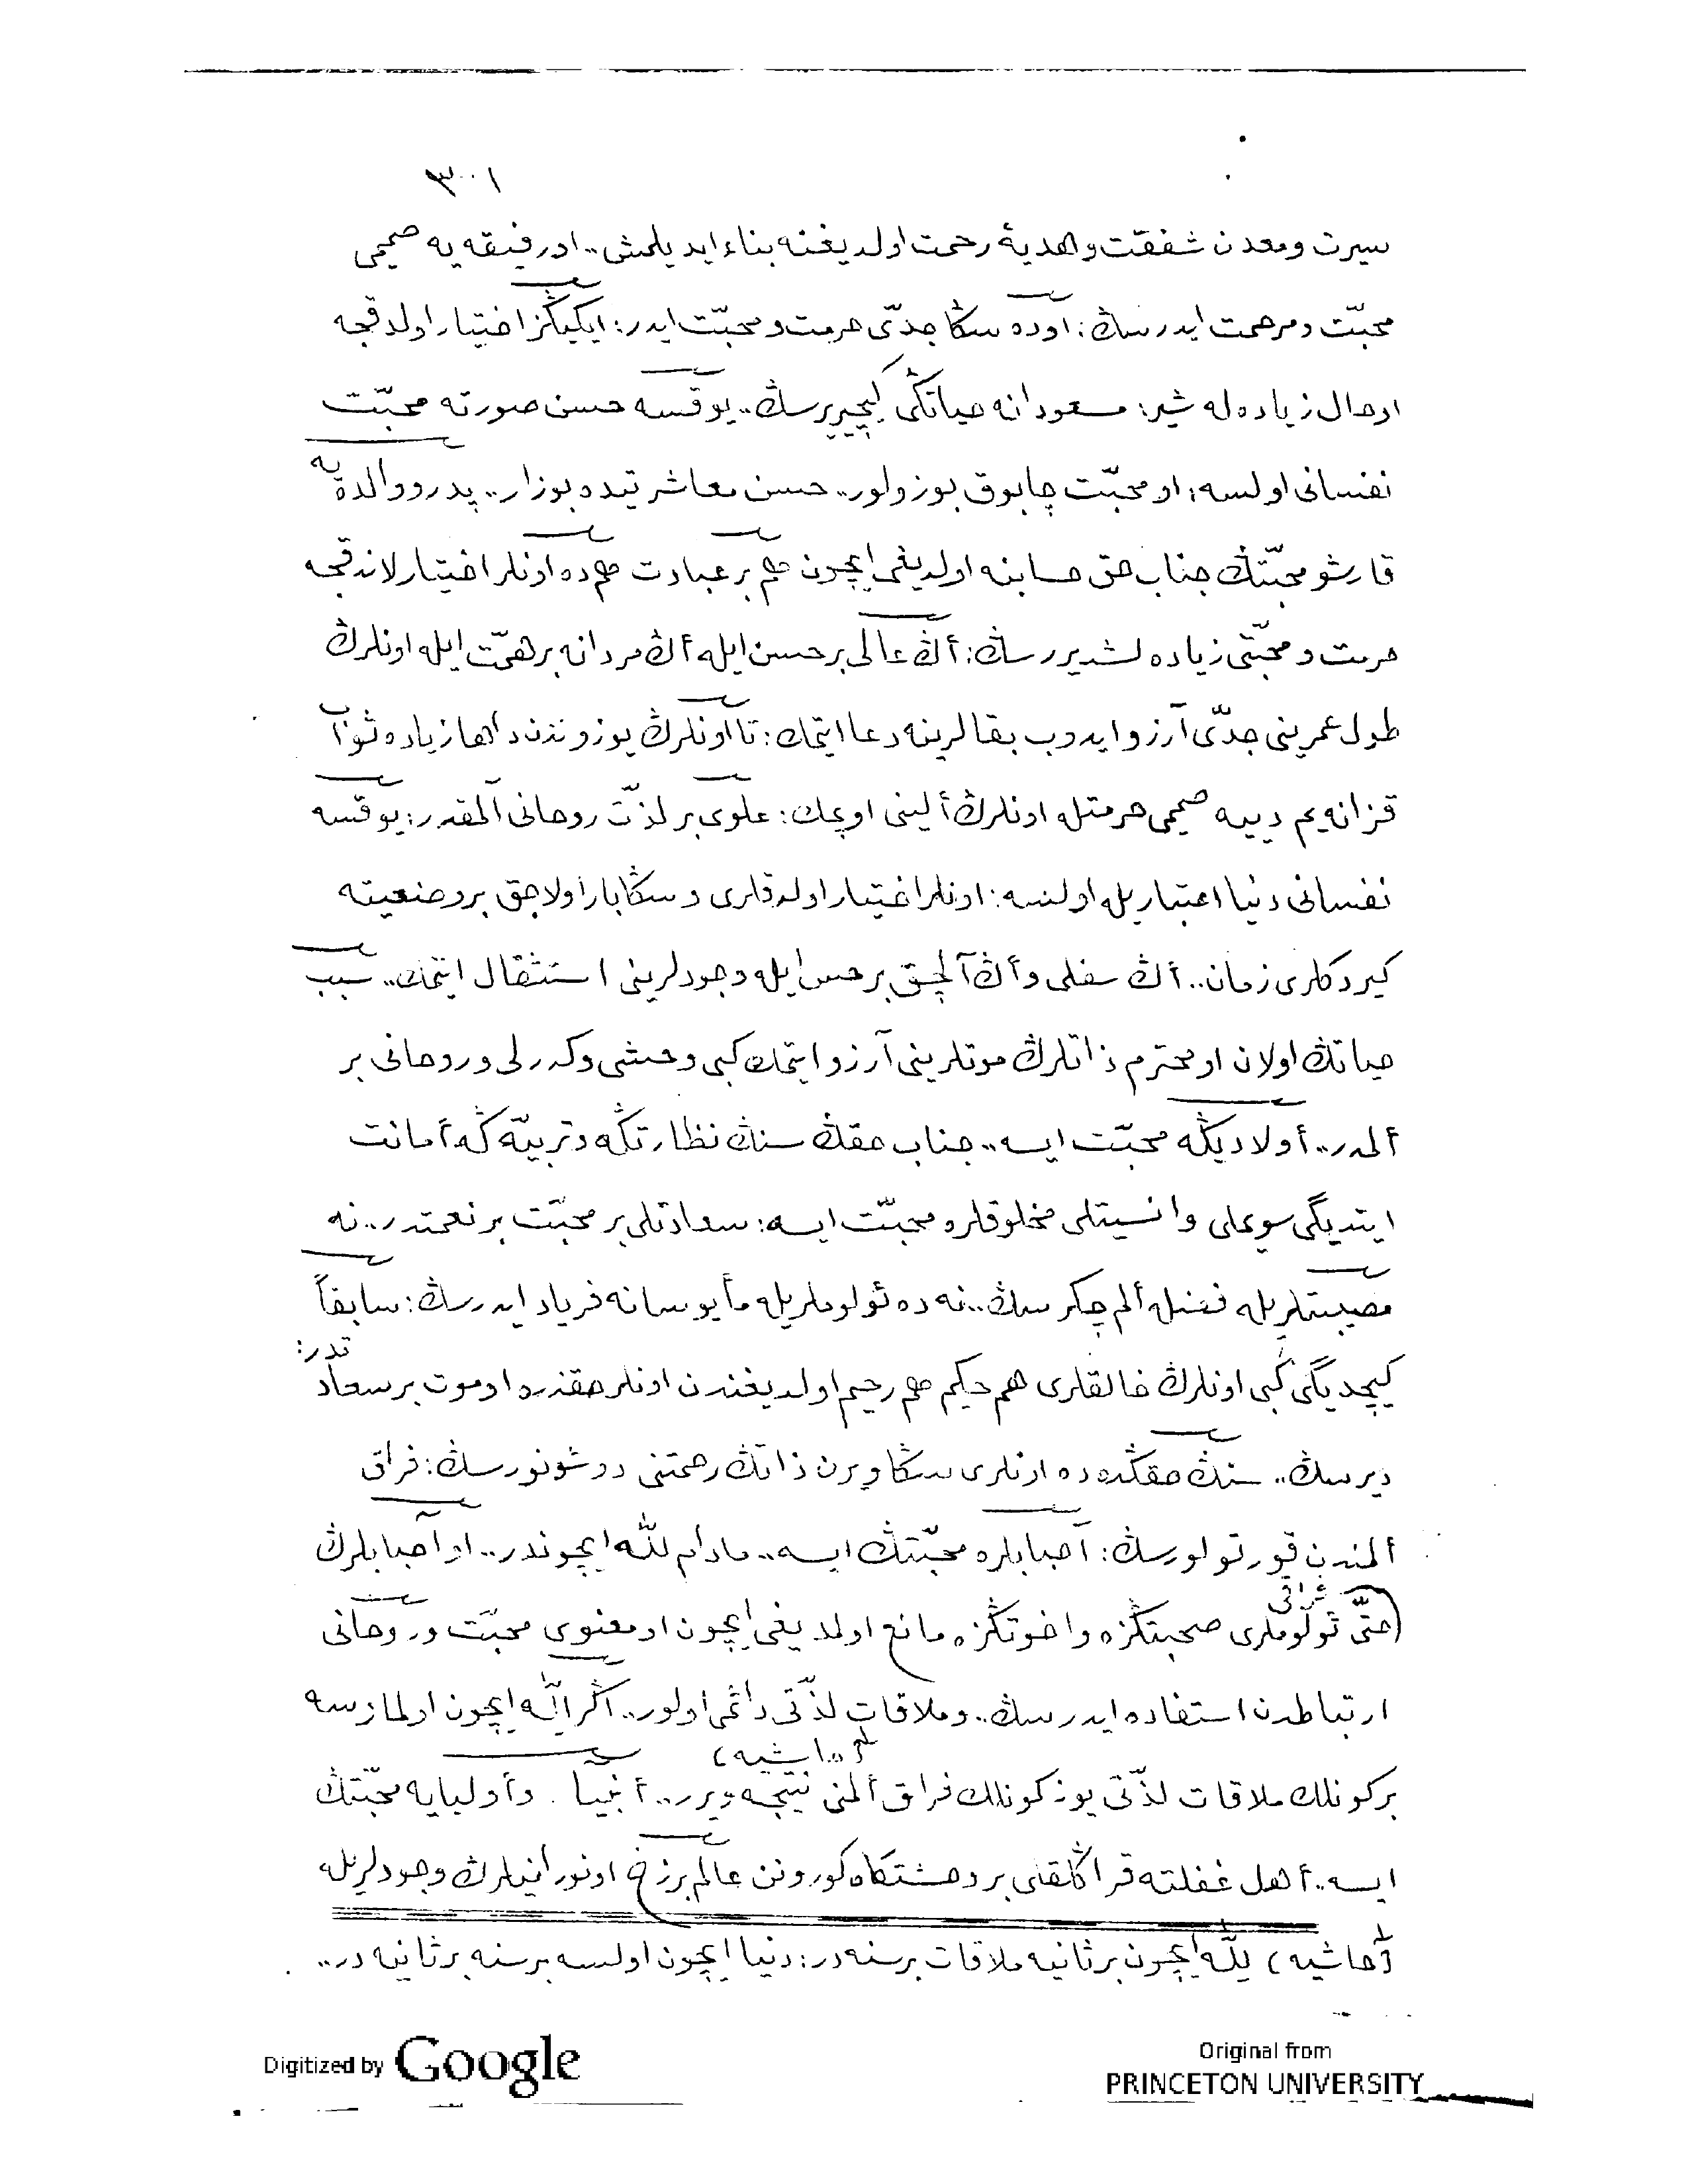 ٣٠١
سيرت ومعدن شفقت وهديۀ رحمت اولديغنه بناء ايديلمش.. او رفيقه يه صميمى
محبّت ومرحمت ايدرسڭ؛ اوده سڭا جدّى حرمت و محبّت ايدر؛ ايكيڭز اختيار اولدقجه
او حال زياده له شير؛ مسعودانه حياتڭى كيچيررسڭ.. يوقسه حسن صورته محبّت
نفسانى اولسه؛ او محبّت چابوق بوزولور.. حسن معاشرتيده بوزار.. پدر و والدۀ يه
قارشو محبّتڭ جناب حق حسابنه اولديغى ايچون هم بر عبادت هم ده اونلر اختيارلاندقجه
حرمت و محبّتى زياده لشديررسڭ؛ أڭ عالى بر حسن ايله أڭ مردانه بر همّت ايله اونلرڭ
طول عمرينى جدّى آرزو ايدوب بقالرينه دعا ايتمك؛ تا اونلرڭ يوزوندن داها زياده ثواب
قزانه يم دييه صميمى حرمتله اونلرڭ ألينى اوپمك؛ علوى بر لذّت روحانى آلمقدر؛ يوقسه
نفسانى دنيا اعتباريله اولسه؛ اونلر اختيار اولدقلرى و سڭا بار اولاجق بر وضعيته
كيردكلرى زمان.. أڭ سفلى و أڭ آلچق بر حس ايله وجودلرينى استثقال ايتمك.. سبب
حياتڭ اولان او محترم ذاتلرڭ موتلرينى آرزو ايتمك كبى وحشى وكدرلى و روحانى بر
ألمدر.. أولاديڭه محبّت ايسه.. جناب حقڭ سنڭ نظارتڭه و تربيّه ڭه أمانت
ايتديگى سويملى و انسيتلى مخلوقلره محبّت ايسه؛ سعادتلى بر محبّت بر نعمتدر.. نه
مصيبتلريله فضله ألم چكرسڭ.. نه ده ئولوملريله مأيوسانه فرياد ايدرسڭ؛ سابقاً
كيچديگى كبى اونلرڭ خالقلرى هم حكيم هم رحيم اولديغندن اونلر حقنده او موت بر سعادتدر؛
ديرسڭ.. سنڭ حقڭده ده اونلرى سڭا ويرن ذاتڭ رحمتنى دوشونورسڭ؛ فراق
ألمندن قورتولورسڭ؛ أحبابلره محبّتڭ ايسه.. مادام لله ايچوندر.. او أحبابلرڭ
فراقى
حتّى ئولوملرى صحبتڭزه و اخوتڭزه مانع اولمديغى ايچون او معنوى محبّت و روحانى
ارتباطدن استفاده ايدرسڭ.. و ملاقات لذّتى دائمى اولور.. أگر اللّٰه ايچون اولمازسه
(حاشيه)
بر كونلك ملاقات لذّتى يوز كونلك فراق ألمنى نتيجه ويرر.. أنبيا . وأوليايه محبّتڭ
ايسه.. أهل غفلته قراڭلقلى بر وحشتگاه كورونن عالم برزخ او نورانيلرڭ وجودلريله
(حاشيه) لِلّٰه ايچون بر ثانيه ملاقات بر سنه در؛ دنيا ايچون اولسه بر سنه بر ثانيه در..
Digitized by Google
Original from
PRINCETON UNIVERSITY